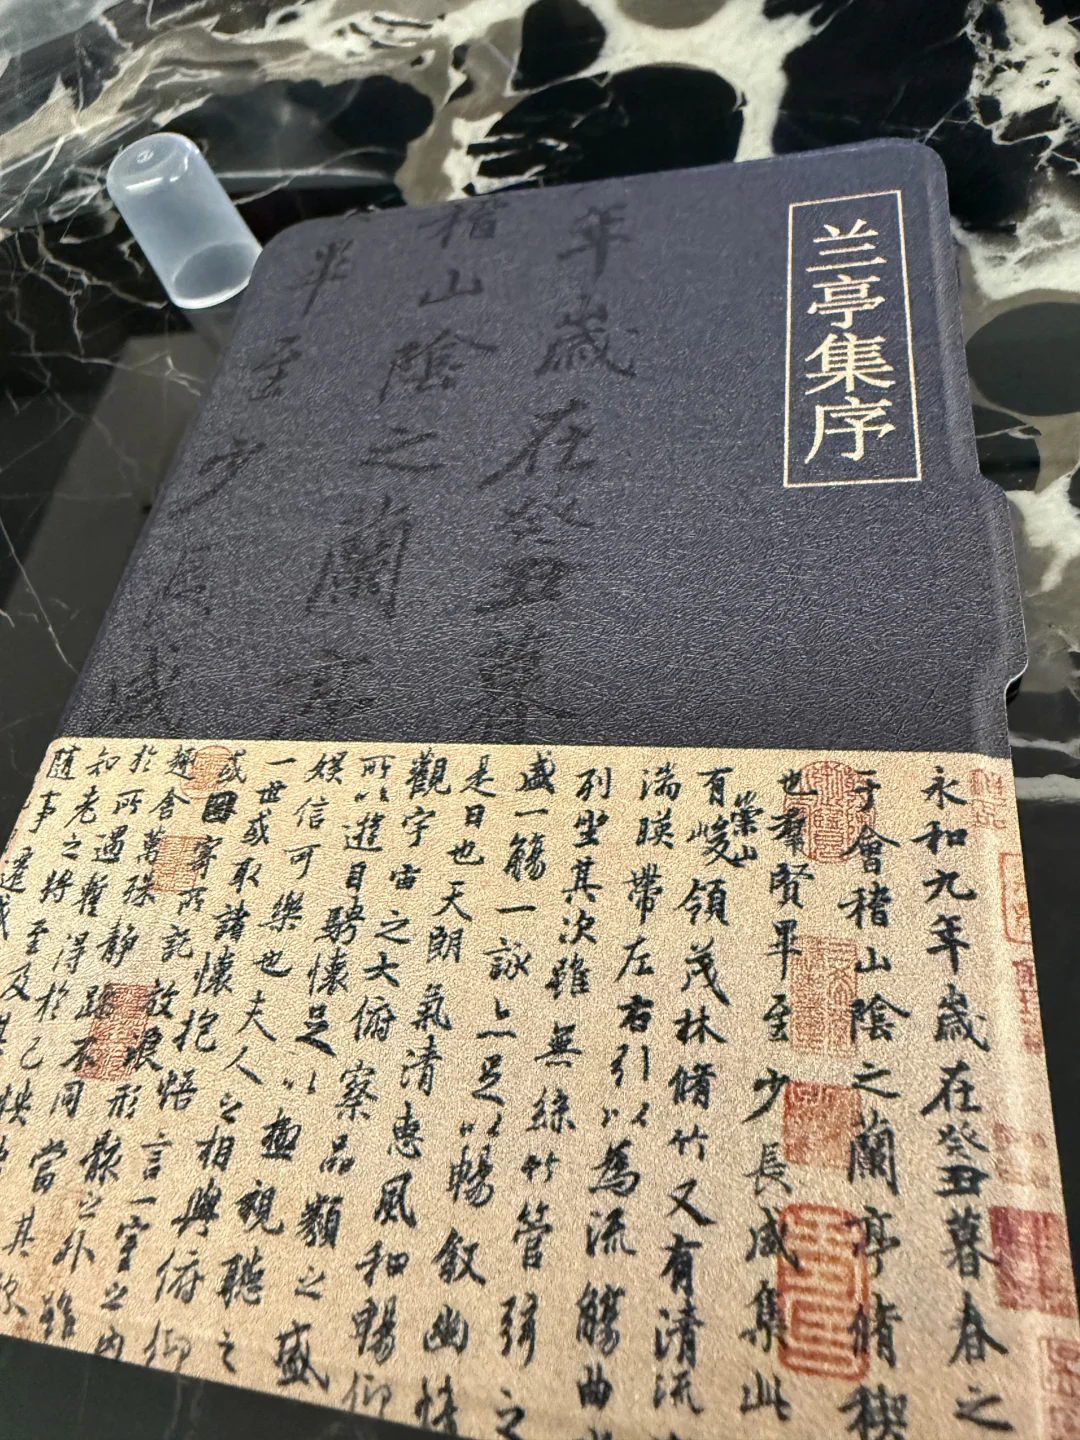 兰亭集序
年歲在癸丑暮
稽山陰之蘭亭
畢至少長咸
永和九年歲在癸丑暮春之
于會稽山陰之蘭亭脩禊
也羣賢畢至少長咸集此
有崇山峻領茂林脩竹又有清流
湍暎帶左右引以為流觴曲
列坐其次雖無絲竹管弦之
盛一觴一詠亦足以暢叙幽情
是日也天朗氣清惠風和暢仰
觀宇宙之大俯察品類之盛
所以遊目騁懷足以極視聽之
娛信可樂也夫人之相與俯仰
一世或取諸懷抱悟言一室之內
或因寄所託放浪形骸之外雖
趣舍萬殊靜躁不同當其欣
於所遇暫得於己快
知老之將至及其
隨事遷